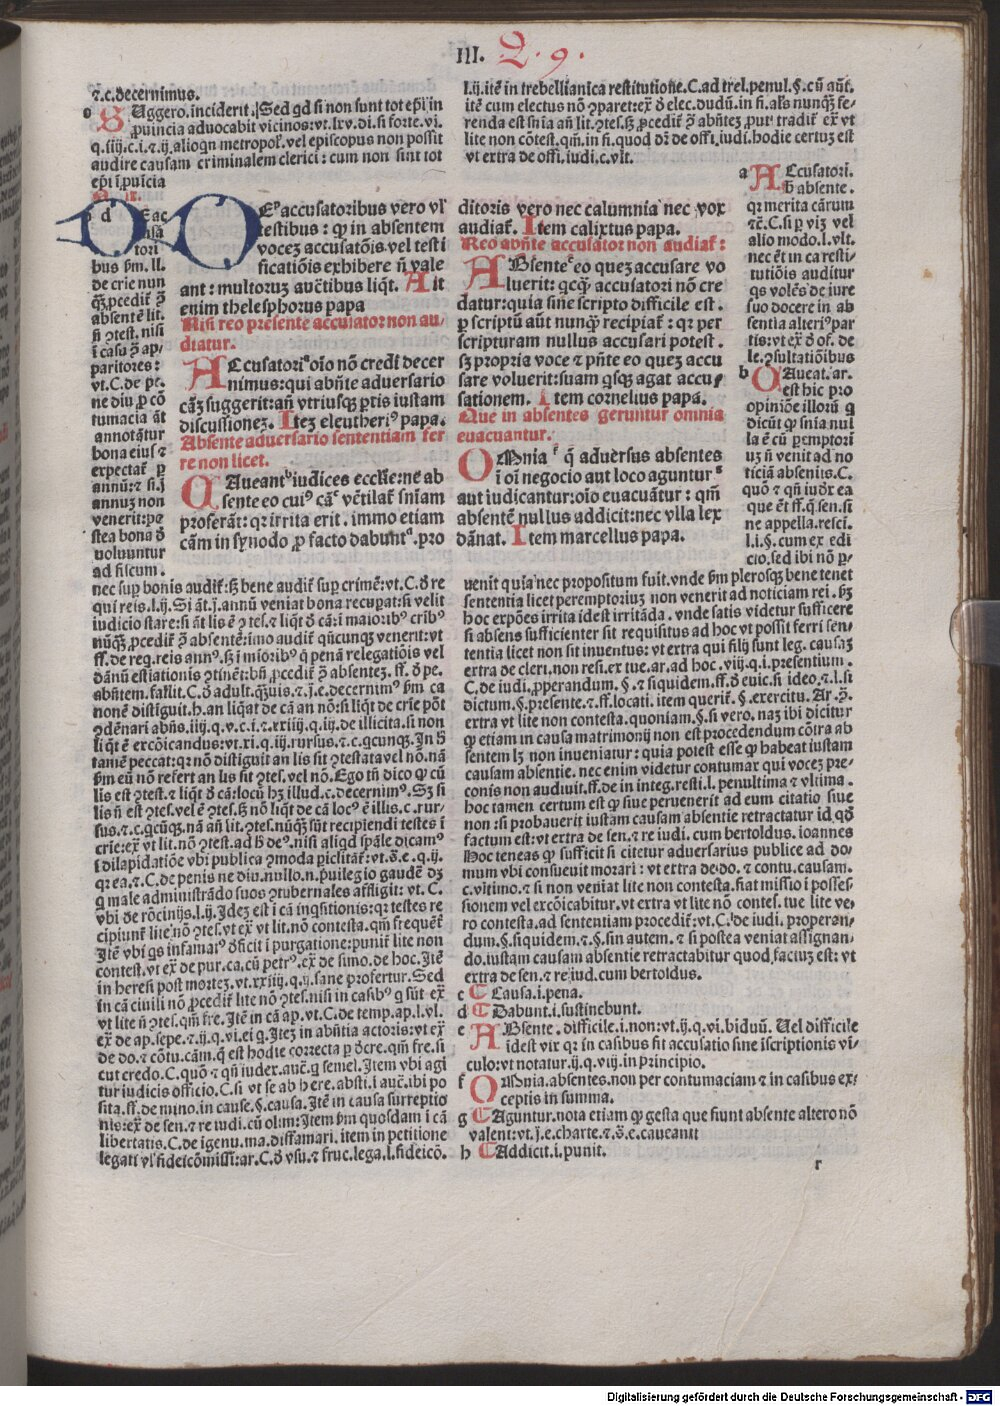 III. Q. 9.
⁊.c.decernimus.
o SUggero.inciderit. Sed qd si non sunt tot ep̄i in
ꝓuincia aduocabit vicinos:vt.lxv.di.si forte.vi.
q.iiij.c.i.⁊.ij.alioqn metropol̄.vel episcopus non possit
audire causam criminalem clerici : cum non sint tot
ep̄i ī ꝓuicia
d
tori
bus s̄m.ll.
de crie nun
absente lit.
n̄ ꝯtest.nisi
paritores:
vt.C.de pe.
ne diu p cō
tumacia āt
annotātur
bona eius ⁊
expectat̄ p
annū:⁊ si.j
annuz non
venerit:pe
stea bona d̄
voluuntur
ad fiscum.
DEꝰ accusatoribus vero vl̄
testibus : ꝙ in absentem
vocez accusatōis.vel testi
ficatiōis exhibere n̄ vale
ant : multoruz auc̄tibus liqt̄. Ait
enim thelesphorus papa
Nisi reo presente accusator non au/
diatur.
ACcusatoriꝰ oīo nō credi decer
nimus:qui abn̄te aduersario
cāz suggerit:an̄ vtriusqꝫ ꝑtis iustam
discussionez. Itez eleutheriꝰ papa.
Absente aduersario sententiam fer
re non licet.
CAueant iudices ecclīe:ne ab
sente eo cuiꝰ cā vētilat̄ sn̄iam
proferāt:qꝛ irrita erit. immo etiam
cām in synodo ꝓ facto dabunt. pro
ditoris vero nec calumnia nec vox
audiat̄. Item calixtus papa.
Reo abn̄te accusator non audiat̄:
ABsente eo quez accusare vo
luerit:qcqꝫ accusatori nō cre
datur:quia sine scripto difficile est.
ꝑ scriptū aūt nunqꝫ recipiat̄ : qꝛ per
scripturam nullus accusari potest.
sꝫ propria voce ⁊ pn̄te eo quez accu
sare voluerit:suam qsqꝫ agat accu/
sationem. Item cornelius papa.
Que in absentes geruntur omnia
euacuantur.
OMnia q̄ aduersus absentes
ī oi negocio aut loco aguntur
aut iudicantur:oīo euacuātur : qm̄
absentē nullus addicit:nec vlla lex
dānat. Item marcellus papa.
l.ij.itē in trebellianica restitutione.C.ad trel.penul.§.cū aūt.
itē cum electus nō ꝯparet:ex̄ d̄ elec.dudū.in fi.als nunqꝫ fe/
renda est sn̄ia an̄ lit.ꝯtes.sꝫ ꝓcedit̄ ꝯ̄ abn̄tez ,put tradit̄ ex̄ vt
lite non cōtest.qm̄.in fi.quod dr̄ de offi.iudi.hodie certuz est
vt extra de offi.iudi.c.vlt.
a ACcusatori.
s̄ absente.
qꝛ merita cārum
⁊c̄.C.si p viz vel
alio modo.l.vlt.
nec ēt in ca resti/
tutiōis auditur
qs volēs de iure
suo docere in ab
sentia alteriꝰ par
tis:vt ex̄ d̄ of. de
le.ꝯsultatiōibus
b CAueāt.ar.
est hic pro
opiniōe illorū q
dicūt ꝙ sn̄ia nul
la ē cū ꝑemptori
uz n̄ venit ad no
ticiā absentis.C.
quō ⁊ qn̄ iudx̄ ea
que ēt ff.q̄ sen.si
ne appella.resci.
l.i.§.cum ex edi
cio.sed ibi nō ꝑ/
nec sup bonis audit̄:sꝫ bene audit̄ sup crimē:vt.C.d̄ re
qui reis.l.ij.Si āt.j.annū veniat bona recupat:si velit
iudicio stare:si āt lis ē ꝯtes.⁊ liqt̄ d̄ cā:ī maioribꝰ cribꝰ
nūqꝫ ꝓcedit̄ ꝯ̄ absentē:imo audit̄ qn̄cunqꝫ venerit:vt
ff.de req.reis annꝰ.sꝫ ī mioribꝰ q penā relegatiōis vel
dānū estiationis ꝯtinēt:bn̄ ꝓcedit̄ ꝯ̄ absentez. ff. d̄ pe.
absn̄tem.fallit.C.d̄ adult.qꝫuis.⁊.j.e.decernimꝰ s̄m ca
nonē distiguit.h.an liqat de cā an nō:si liqt de crie pōt
ꝯdēnari abn̄s.iiij.q.v.c.i.⁊.xxiiij.q.iij.de illicita.si non
liqt ē excōicandus:vt.xi.q.iij.rursus.⁊.c.qcunqꝫ. In h̄
tamē peccat:qꝛ nō distiguit an lis sit ꝯtestata vel nō.nā
s̄m eū nō refert an lis sit ꝯtes̄.vel nō. Ego tn̄ dico ꝙ cū
lis est ꝯtest.⁊ liqt d̄ cā:locū hꝫ illud.c.decernimꝰ. Sꝫ si
lis n̄ est ꝯtes.vel ē ꝯtes.sꝫ nō liqt de cā locꝰ ē illis.c.rur/
sus.⁊.c.qcūqꝫ.nā an̄ lit.ꝯtes.nūqꝫ sūt recipiendi testes ī
crie:ex̄ vt lit.nō ꝯtest.ad h̄ deꝰ.nisi aliqd spāle dicamꝰ
ī dilapidatiōe vbi publica ꝯmoda ꝑiclitāt̄:vt.s̄.e.q.ij.
qꝛ ea.⁊.C.de penis ne diu.nullo.n.puilegio gaudē dꝫ
q male administrādo suos ꝯtubernales affligit: vt. C.
vbi de rōcinijs.l.ij. Idez est ī cā inqsitionis:qꝛ testes re
cipiunt̄ lite nō ꝯtes.vt ex̄ vt lit.nō contesta.qm̄ frequēt̄
Itē vbi qs infamatꝰ d̄ficit ī purgatione:punit̄ lite non
contest.vt ex̄ de pur.ca.cū petrꝰ.ex̄ de simo.de hoc. Itē
in heresi post mortez.vt.xxiiij.q.ij.sane profertur. Sed
in cā ciuili nō ꝓcedit̄ lite nō ꝯtes.nisi in casibꝰ q sūt ex̄
vt lite n̄ ꝯtes.qm̄ fre. Itē in cā ap.vt.C.de temp.ap.l.vl.
ex̄ de ap.sepe.⁊.ij.q.vi.ei q. Itez in abn̄tia actoris:vt ex̄
de do.⁊ cōtu.cām.q̄ est hodie correcta p d̄cre.qm̄ fre.si
cut credo.C.quō ⁊ qn̄ iudex.auc̄.q semel. Item vbi agi
tur iudicis officio.C.si vt se ab here.absti.l auc̄.ibi po
sita.ff.de mino.in cause.§.causa. Itē in causa surreptio
nis:ex̄ de sen.⁊ re iudi.cū olim:Item s̄m quosdam ī cā
libertatis.C.de igenu.ma.diffamari.item in petitione
legati vl̄ fideicōmissi:ar.C.d̄ vsu.⁊ fruc.lega.l.fideicō.
uenit quia nec propositum fuit.vnde s̄m plerosqꝫ bene tenet
sententia licet peremptoriuz non venerit ad noticiam rei. sꝫ
hoc expōes irrita idest irritāda. vnde satis videtur sufficere
si absens sufficienter sit requisitus ad hoc vt possit ferri sen/
tentia licet non sit inuentus:vt extra qui filij sunt leg.causaz
extra de cleri.non resi.ex tue.ar.ad hoc.viij.q.i.presentium.
C.de iudi.ꝓperandum.§.⁊ siquidem.ff.d̄ euic.si ideo.⁊.l.si
dictum.§.presente.⁊.ff.locati.item querit̄.§.exercitu. Ar.ꝯ̄.
extra vt lite non contesta.quoniam.§.si vero.naz ibi dicitur
ꝙ etiam in causa matrimonij non est procedendum cōtra ab
sentem lꝫ non inueniatur : quia potest esse ꝙ habeat iustam
causam absentie.nec enim videtur contumax qui vocez pre/
conis non audiuit.ff.de in integ.resti.l.penultima ⁊ vltima.
hoc tamen certum est ꝙ siue peruenerit ad eum citatio siue
non:si probauerit iustam causam absentie retractatur id qd̄
factum est:vt extra de sen.⁊ re iudi.cum bertoldus.ioannes
Hoc teneas ꝙ sufficit si citetur aduersarius publice ad do/
mum vbi consueuit morari : vt extra de do.⁊ contu.causam.
c.vltimo.⁊ si non veniat lite non contesta.fiat missio ī posses/
sionem vel excōicabitur.vt extra vt lite nō contes.tue lite ve/
ro contesta.ad sententiam procedit̄:vt.C.de iudi.properan/
dum.§.siquidem.⁊.§.sin autem.⁊ si postea veniat assignan/
do.iustam causam absentie retractabitur quod factuz est:vt
extra de sen.⁊ re iud.cum bertoldus.
c ¶ Causa.i.pena.
d ¶ Dabunt.i.sustinebunt.
e ABsente.difficile.i.non:vt.ij.q.vi.biduū. Uel difficile
idest vix qꝛ in casibus fit accusatio sine īscriptionis vi/
culo:vt notatur.ij.q.viij.in principio.
f OMnia.absentes.non per contumaciam ⁊ in casibus ex/
ceptis in summa.
g ¶ Aguntur.nota etiam ꝙ gesta que fiunt absente altero nō
valent:vt.j.e.charte.⁊.s̄.e.caueant
h ¶ Addicit.i.punit.
r
Digitalisierung gefördert durch die Deutsche Forschungsgemeinschaft - DFG